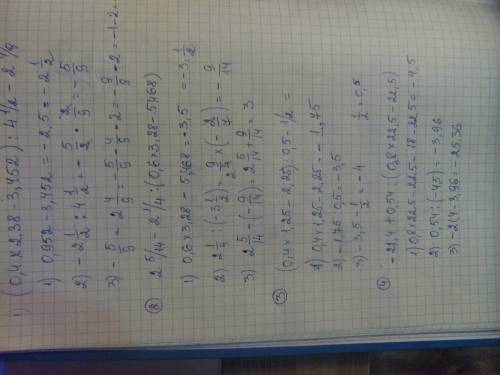 1) (0,4 x 2,38 - 3,452) : 4 1/2 - 2 4/9
1) 0,952 - 3,452 = - 2,5 = - 2 1/2
2) - 2 1/2 : 4 1/2 = - 5/2 · 2/9 = - 5/9
3) - 5/9 = 2 4/9 = - 5/9 - 4/9 - 2 = - 9/9 - 2 = -1 - 2 =
② 2 5/14 - 2 1/4 : (0,6 x 3,28 - 5,468)
1) 0,6 x 3,28 - 5,468 = - 3,5 = - 3 1/2
2) 2 1/4 : (-3 1/2) = 9/4 x (- 2/7) = - 9/14
3) 2 5/14 - (- 9/14) = 2 5/14 + 9/14 = 3
③ (0,4 x 1,25 - 2,25) : 0,5 - 1/2 =
1) 0,4 x 1,25 - 2,25 = - 1,75
2) - 1,75 : 0,5 = - 3,5
3) - 3,5 - 1/2 = - 4 1/2 = 0,5
④ - 21,4 + 0,54 : (0,8 x 22,5 - 22,5)
1) 0,8 x 22,5 - 22,5 = 18 - 22,5 = - 4,5
2) 0,54 : (-4,5) = - 3,96
3) - 21,4 - 3,96 = - 25,36